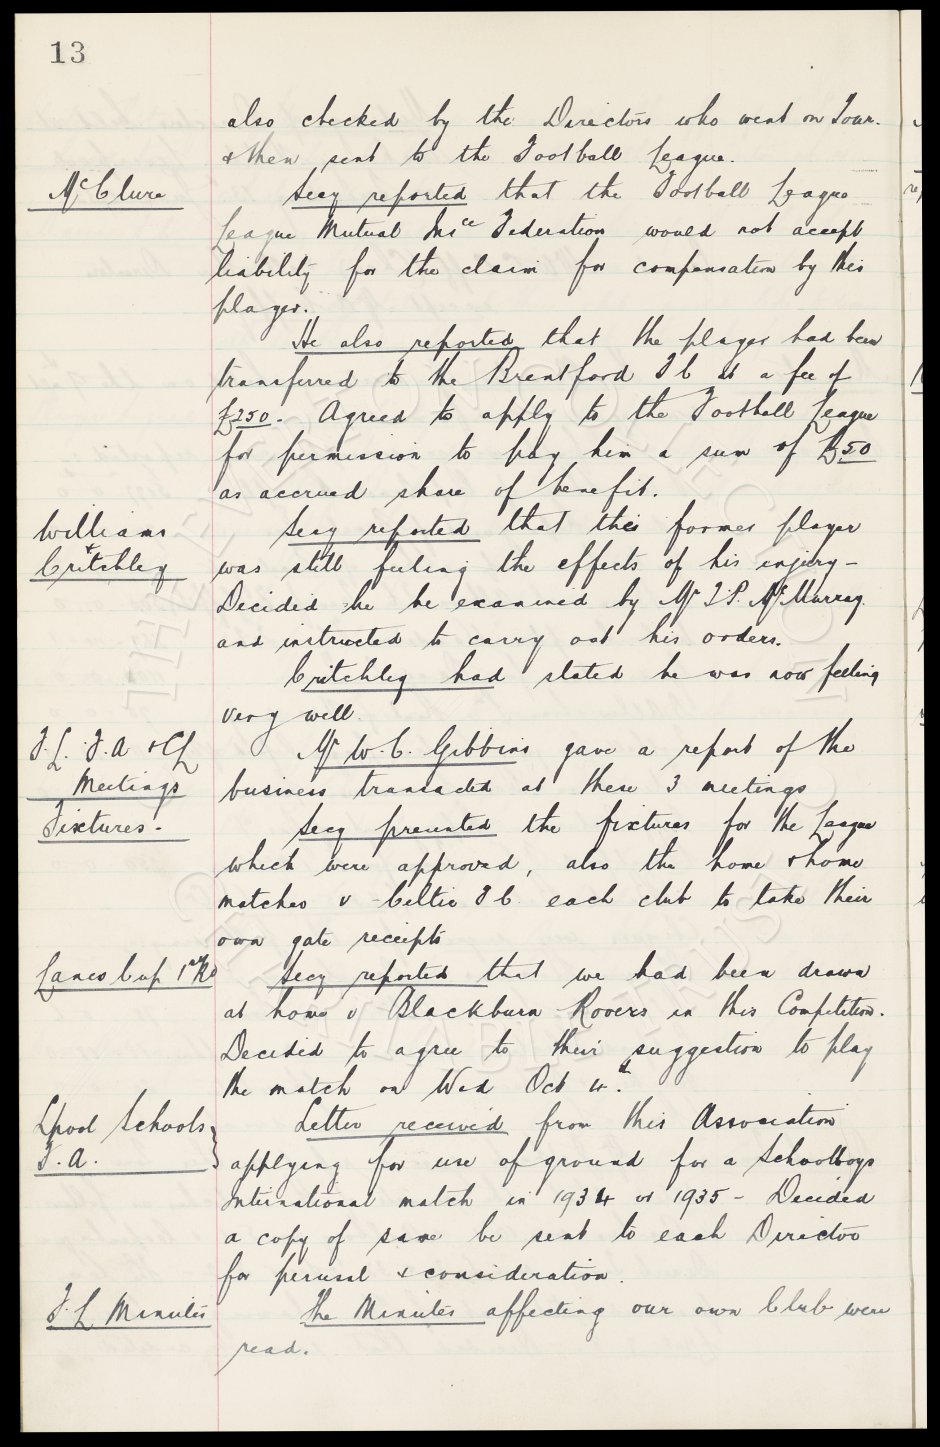 13
also checked by the Directors who went on Tour.
& then sent to the Football League.
McClure
Secy reported that the Football League
League Mutual Insce Federation would not accept
liability for the claim for compensation by this
player.
He also reported that the player had been
transferred to the Brentford F C at a fee of
£250. Agreed to apply to the Football League
for permission to pay him a sum of £50
as accrued share of benefit.
Williams
&
Critchley
Secy reported that this former player
was still feeling the effects of his injury -
Decided he be examined by Mr T.P. McMurray
and instructed to carry out his orders.
Critchley had stated he was now feeling
very well
F.L. F.A & CL
Meetings
Mr W.C. Gibbins gave a report of the
business transacted at these 3 meetings
Fixtures.
Secy presented the fixtures for the League
which were approved, also the home & home
matches v Celtic F C. each club to take their
own gate receipts
Lancs Cup 1st Rd
Secy reported that we had been drawn
at home v Blackburn Rovers in this Competition.
Decided to agree to their suggestion to play
the match on Wed Oct 4th.
Lpool Schools
F.A.
Letter received from this Association
applying for use of ground for a Schoolboys
International match in 1934 or 1935 - Decided
a copy of same be sent to each Director
for perusal & consideration.
F.L Minutes
The Minutes affecting our own Club were
read.